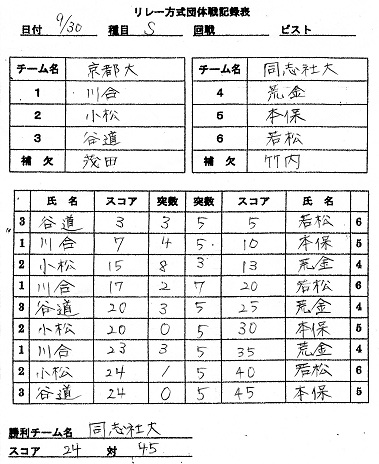 リレー方式団体戦記録表
日付 9/30 種目 S 回戦 ピスト
チーム名 京都大 チーム名 同志社大
1 川合 4 荒金
2 小松 5 本保
3 谷道 6 若松
補欠 茂田 補欠 竹内
氏名 スコア 突数 突数 スコア 氏名
3 谷道 3 3 5 5 若松 6
1 川合 7 4 5 10 本保 5
2 小松 15 8 3 13 荒金 4
1 川合 17 2 7 20 若松 6
3 谷道 20 3 5 25 荒金 4
2 小松 20 0 5 30 本保 5
1 川合 23 3 5 35 荒金 4
2 小松 24 1 5 40 若松 6
3 谷道 24 0 5 45 本保 5
勝利チーム名 同志社大
スコア 24 対 45